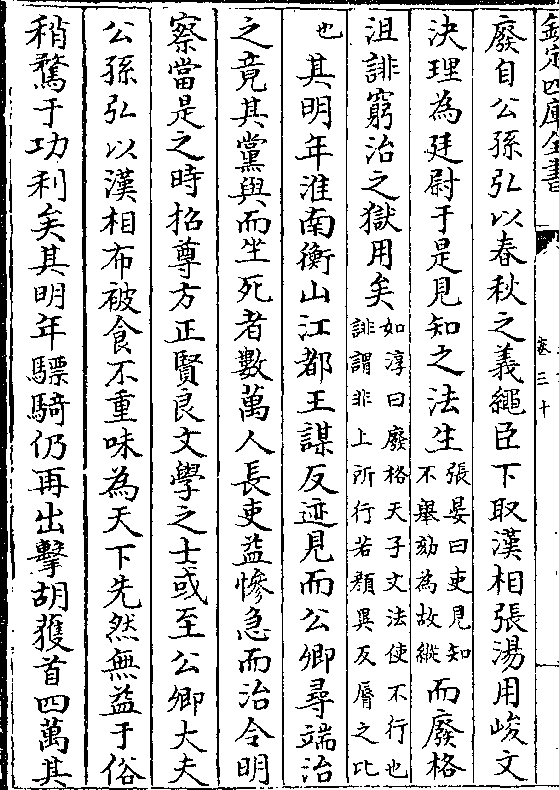 欽定四庫全書
卷三十
廢自公孫弘以春秋之義繩臣下取漢相張湯用峻文
決理為廷尉于是見知之法生張晏曰吏見知不舉劾為故縱而廢格
沮誹窮治之獄用矣如淳曰廢格天子文法使不行也誹謂非上所行若顔異反脣之比
也其明年淮南衡山江都王謀反迹見而公卿尋端治
之竟其黨與而坐死者數萬人長吏益慘急而法令明
察當是之時招尊方正賢良文學之士或至公卿大夫
公孫弘以漢相布被食不重味為天下先然無益于俗
稍騖于功利矣其明年驃騎仍再出擊胡獲首四萬其